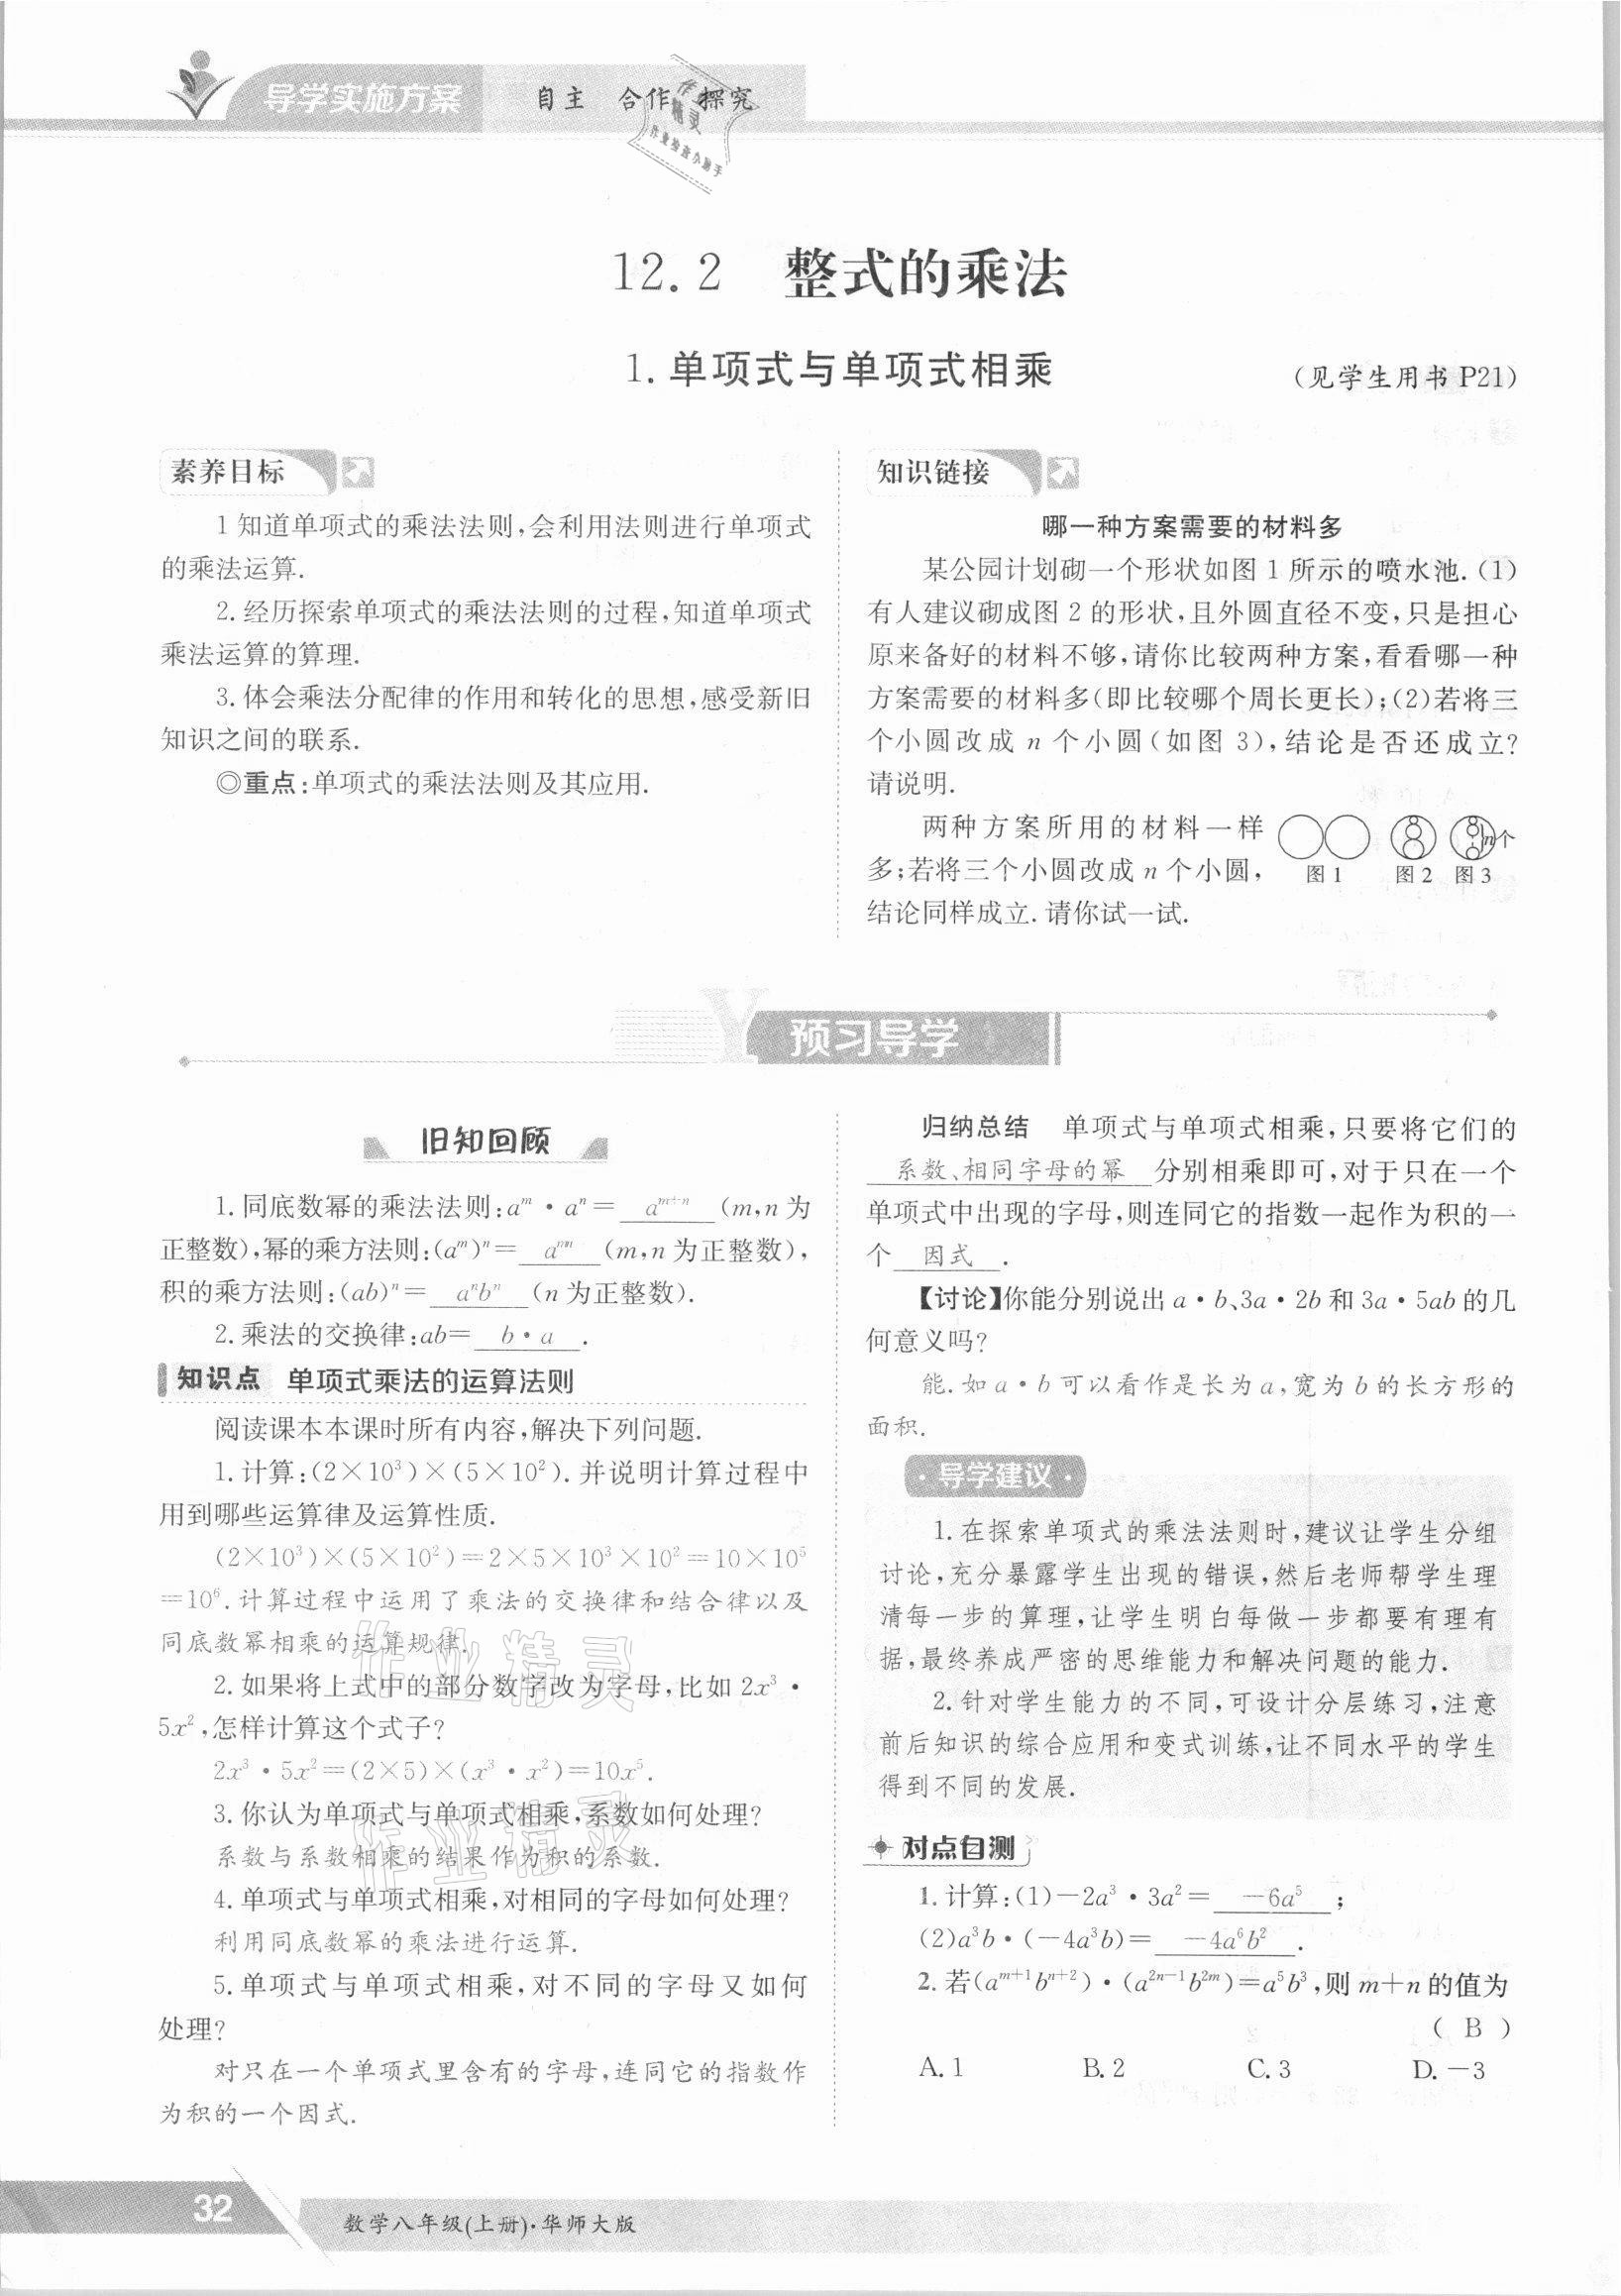 导学实施方案 自主 合作 探究
作业
精灵
作业检查小助手
12.2 整式的乘法
1.单项式与单项式相乘 (见学生用书 P21)
素养目标
1 知道单项式的乘法法则,会利用法则进行单项式
的乘法运算.
2.经历探索单项式的乘法法则的过程,知道单项式
乘法运算的算理.
3.体会乘法分配律的作用和转化的思想,感受新旧
知识之间的联系.
◎重点:单项式的乘法法则及其应用.
知识链接
哪一种方案需要的材料多
某公园计划砌一个形状如图 1 所示的喷水池.(1)
有人建议砌成图 2 的形状,且外圆直径不变,只是担心
原来备好的材料不够,请你比较两种方案,看看哪一种
方案需要的材料多(即比较哪个周长更长);(2)若将三
个小圆改成 n 个小圆(如图 3),结论是否还成立?
请说明.
两种方案所用的材料一样
多;若将三个小圆改成 n 个小圆,
结论同样成立.请你试一试.
n个
图 1 图 2 图 3
预习导学
旧知回顾
1.同底数幂的乘法法则:aᵐ·aⁿ= aᵐ⁺ⁿ (m,n 为
正整数),幂的乘方法则:(aᵐ)ⁿ= aᵐⁿ (m,n 为正整数),
积的乘方法则:(ab)ⁿ= aⁿbⁿ (n 为正整数).
2.乘法的交换律:ab= b·a .
知识点 单项式乘法的运算法则
阅读课本本课时所有内容,解决下列问题.
1.计算:(2×10³)×(5×10²).并说明计算过程中
用到哪些运算律及运算性质.
(2×10³)×(5×10²)=2×5×10³×10²=10×10⁵
=10⁶.计算过程中运用了乘法的交换律和结合律以及
同底数幂相乘的运算规律.
2.如果将上式中的部分数字改为字母,比如 2x³·
5x²,怎样计算这个式子?
2x³·5x²=(2×5)×(x³·x²)=10x⁵.
3.你认为单项式与单项式相乘,系数如何处理?
系数与系数相乘的结果作为积的系数.
4.单项式与单项式相乘,对相同的字母如何处理?
利用同底数幂的乘法进行运算.
5.单项式与单项式相乘,对不同的字母又如何
处理?
对只在一个单项式里含有的字母,连同它的指数作
为积的一个因式.
作业精灵
作业精灵
归纳总结 单项式与单项式相乘,只要将它们的
系数、相同字母的幂 分别相乘即可,对于只在一个
单项式中出现的字母,则连同它的指数一起作为积的一
个 因式 .
【讨论】你能分别说出 a·b、3a·2b 和 3a·5ab 的几
何意义吗?
能.如 a·b 可以看作是长为 a,宽为 b 的长方形的
面积.
·导学建议·
1.在探索单项式的乘法法则时,建议让学生分组
讨论,充分暴露学生出现的错误,然后老师帮学生理
清每一步的算理,让学生明白每做一步都要有理有
据,最终养成严密的思维能力和解决问题的能力.
2.针对学生能力的不同,可设计分层练习,注意
前后知识的综合应用和变式训练,让不同水平的学生
得到不同的发展.
对点自测
1.计算:(1)-2a³·3a²= -6a⁵ ;
(2)a³b·(-4a³b)= -4a⁶b² .
2.若(aᵐ⁺¹bⁿ⁺²)·(a²ⁿ⁻¹b²ᵐ)=a⁵b³,则 m+n 的值为
( B )
A.1 B.2 C.3 D.-3
32 数学八年级(上册)·华师大版